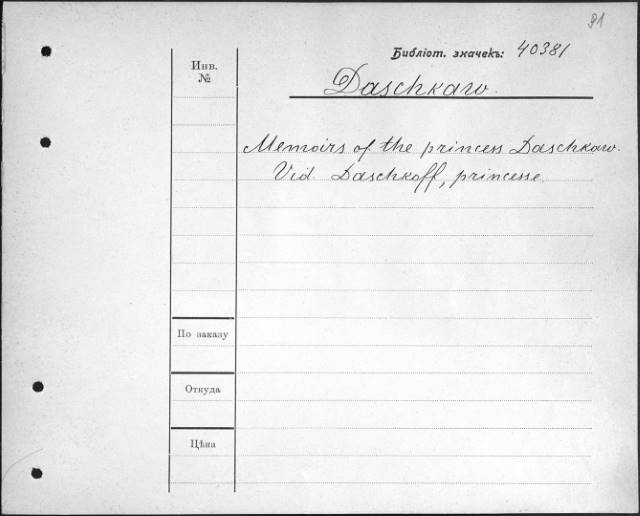 91
Библіот. значекъ: 40381
Инв.
№
Daschkaw.
Memoirs of the princess Daschkaw.
Vid. Daschkoff, princesse.
По заказу
Откуда
Цѣна